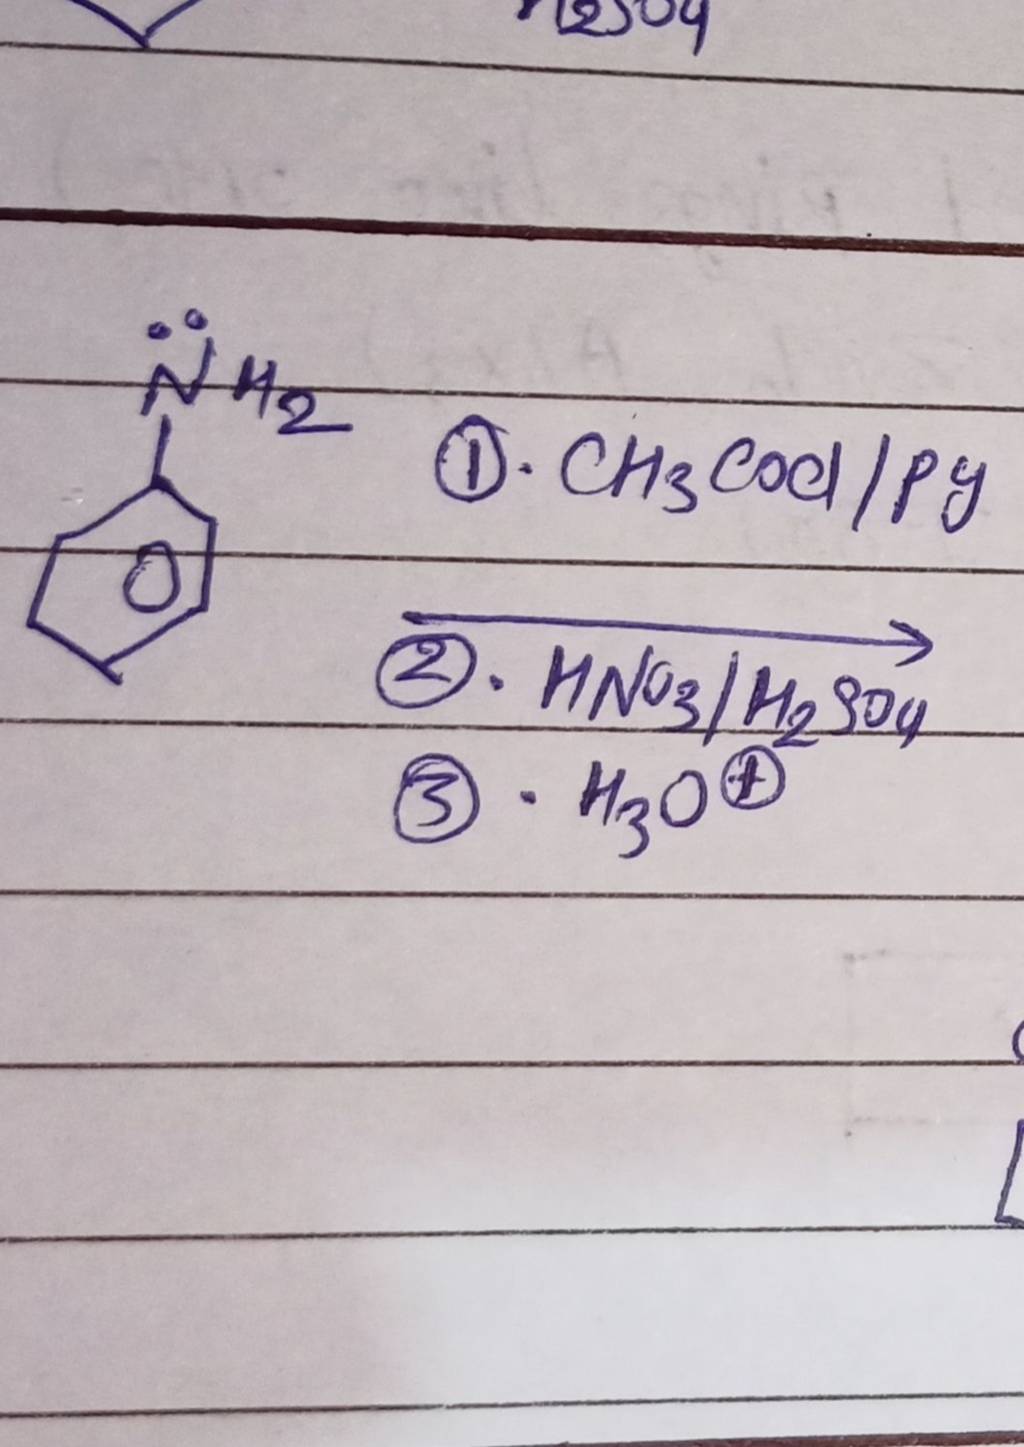 H2SO4
NH2
①. CH3COCl/Py
②. HNO3/H2SO4
③. H3O⊕